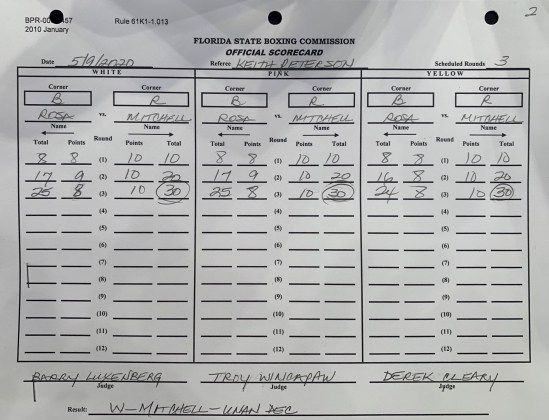 2
BPR-00 457 Rule 61K1-1.013
2010 January
FLORIDA STATE BOXING COMMISSION
OFFICIAL SCORECARD
Date 5/9/2020 Referee KEITH PETERSON Scheduled Rounds 3
WHITE PINK YELLOW
Corner Corner Corner Corner Corner Corner
B R B R B R
ROSA vs. MITCHELL ROSA vs. MITCHELL ROSA vs. MITCHELL
Name Name Name Name Name Name
Round Round Round
Total Points Points Total Total Points Points Total Total Points Points Total
8 8 (1) 10 10 8 8 (1) 10 10 8 8 (1) 10 10
17 9 (2) 10 20 17 9 (2) 10 20 16 8 (2) 10 20
25 8 (3) 10 30 25 8 (3) 10 30 24 8 (3) 10 30
(4) (4) (4)
(5) (5) (5)
(6) (6) (6)
(7) (7) (7)
(8) (8) (8)
(9) (9) (9)
(10) (10) (10)
(11) (11) (11)
(12) (12) (12)
BARRY LUKENBERG TROY WINCAPAW DEREK CLEARY
Judge Judge Judge
Result: W-MITCHELL-UNAN DEC